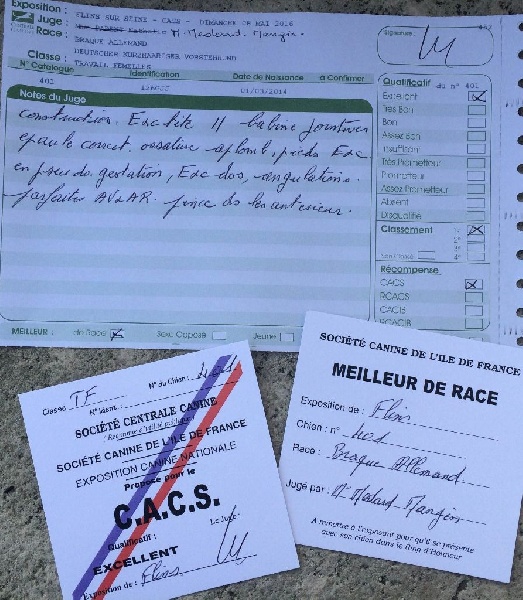 Exposition :
FLINS SUR SEINE - CACS - DIMANCHE 08 MAI 2016
Juge :
M Medard Mangin.
Race :
BRAQUE ALLEMAND
DEUTSCHER KURZHAARIGER VORSTEHHUND
Classe :
TRAVAIL FEMELLES
N° Catalogue Identification Date de Naissance à Confirmer
401
01/03/2014
Signature :
Notes du Juge
construction. Exc tête
épaule correct ossature aplomb, pieds Exc
en pseudo gestation, Exc dos, angulations
parfaites AV & AR.
Qualificatif du n° 401
Excellent
Très Bon
Bon
Assez Bon
Insuffisant
Très Prometteur
Prometteur
Assez Prometteur
Absent
Disqualifié
Classement
1er
2e
3e
4e
Récompense
CACS
RCACS
CACIB
RCACIB
MEILLEUR : de Race Sexe Opposé Jeune
Classe TF N° du Chien : 401
N° Ident.
SOCIÉTÉ CENTRALE CANINE
SOCIÉTÉ CANINE DE L'ILE DE FRANCE
EXPOSITION CANINE NATIONALE
Propose pour le
C.A.C.S.
Qualificatif : Le Juge
EXCELLENT
Exposition de : Flins
SOCIÉTÉ CANINE DE L'ILE DE FRANCE
MEILLEUR DE RACE
Exposition de : Flins
Chien : n° 401
Race : Braque Allemand
Jugé par : M Medard Mangin
A remettre à l'exposant pour qu'il se présente
avec son chien dans le Ring d'Honneur